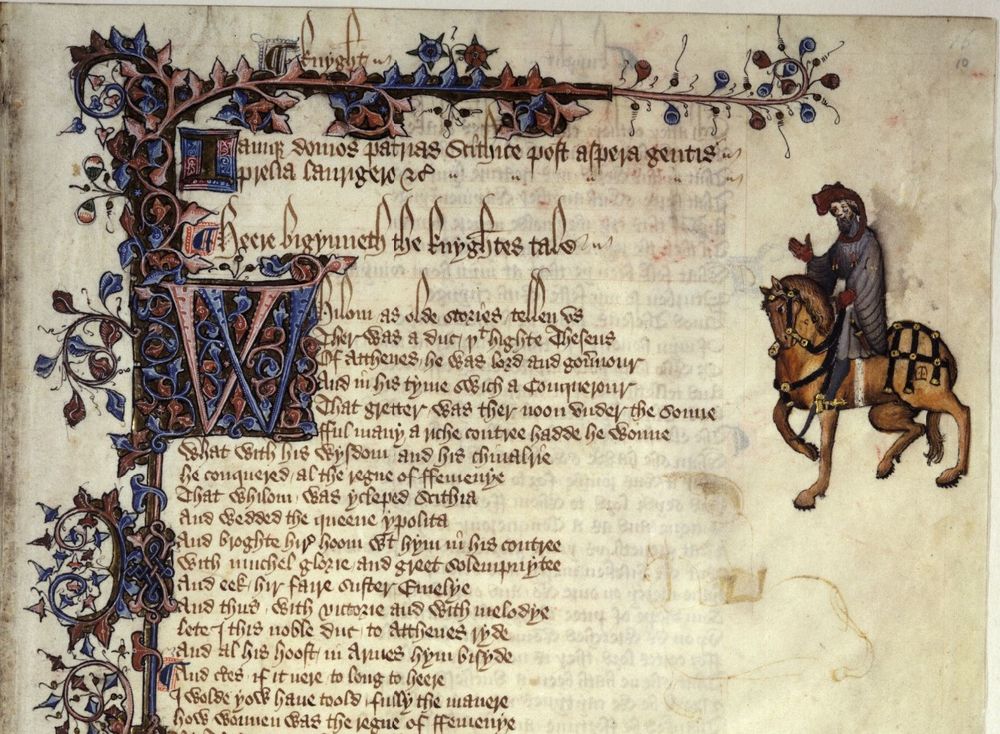 ¶ knyght
Iamq; domos patrias Scithice post aspera gentis
prelia laurigero &c
¶ Heere bigynneth the knyghtes tale
Whilom as olde stories tellen vs
Ther was a duc þt highte Theseus
Of Atthenes he was lord and gouernour
And in his tyme swich a Conquerour
That gretter was ther noon vnder the sonne
fful many a riche contree hadde he wonne
What with his wysdom and his chiualrie
he conquered al the regne of ffemenye
That whilom was ycleped Scithia
And wedded the queene ypolita
And broghte hir hoom wt hym in his contree
With muchel glorie and greet solempnytee
And eek hir faire suster Emelye
And thus with victorie and with melodye
lete I this noble duc to Atthenes ryde
And al his hoost in Armes hym bisyde
¶ And certes if it nere to long to heere
I wolde yow haue toold fully the manere
how wonnen was the regne of ffemenye
10